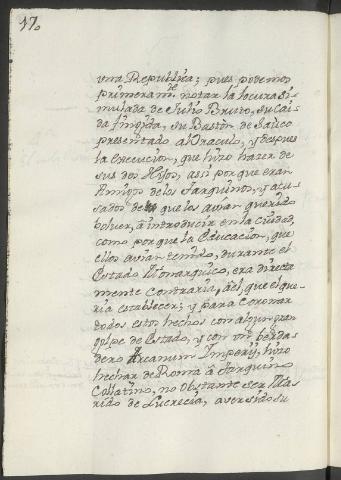 17.
una Republica; pues podemos
primeram.te notar la locura si-
mulada de Julio Bruto, su Cai-
da fingida, su Baston de Sauco
presentado al Oraculo, y despues
la execucion, que hizo hazer de
sus dos Hijos, assi porque eran
Amigos de los Tarquinos, y acu-
sados de que los avian querido
bolver, â introducir en la ciudad,
como porque la Educacion, que
ellos avian tenido, durante el
Estado Monarquico, era directa
mente contraria, âel, que el que-
ria establecer; y para Coronar
todos estos hechos con algun gran
golpe de Estado, y con un berda-
dero Arcanum Imperij, hizo
hechar de Roma â Tarquino
Collatino, no obstante ser Ma-
rido de Lucrecia, aver sido su